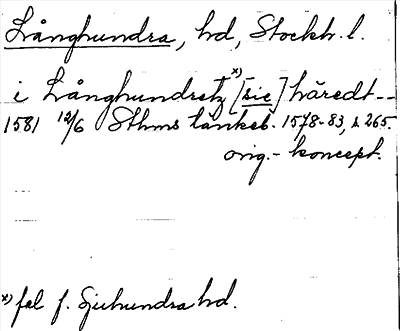 Långhundra, hd, Stockh. l.
i Långhundretz x) [sic] häredt--
1581 12/6 Sthms tänkeb. 1578-83, s. 265.
orig.- koncept.
x) fel f. Sjuhundra hd.